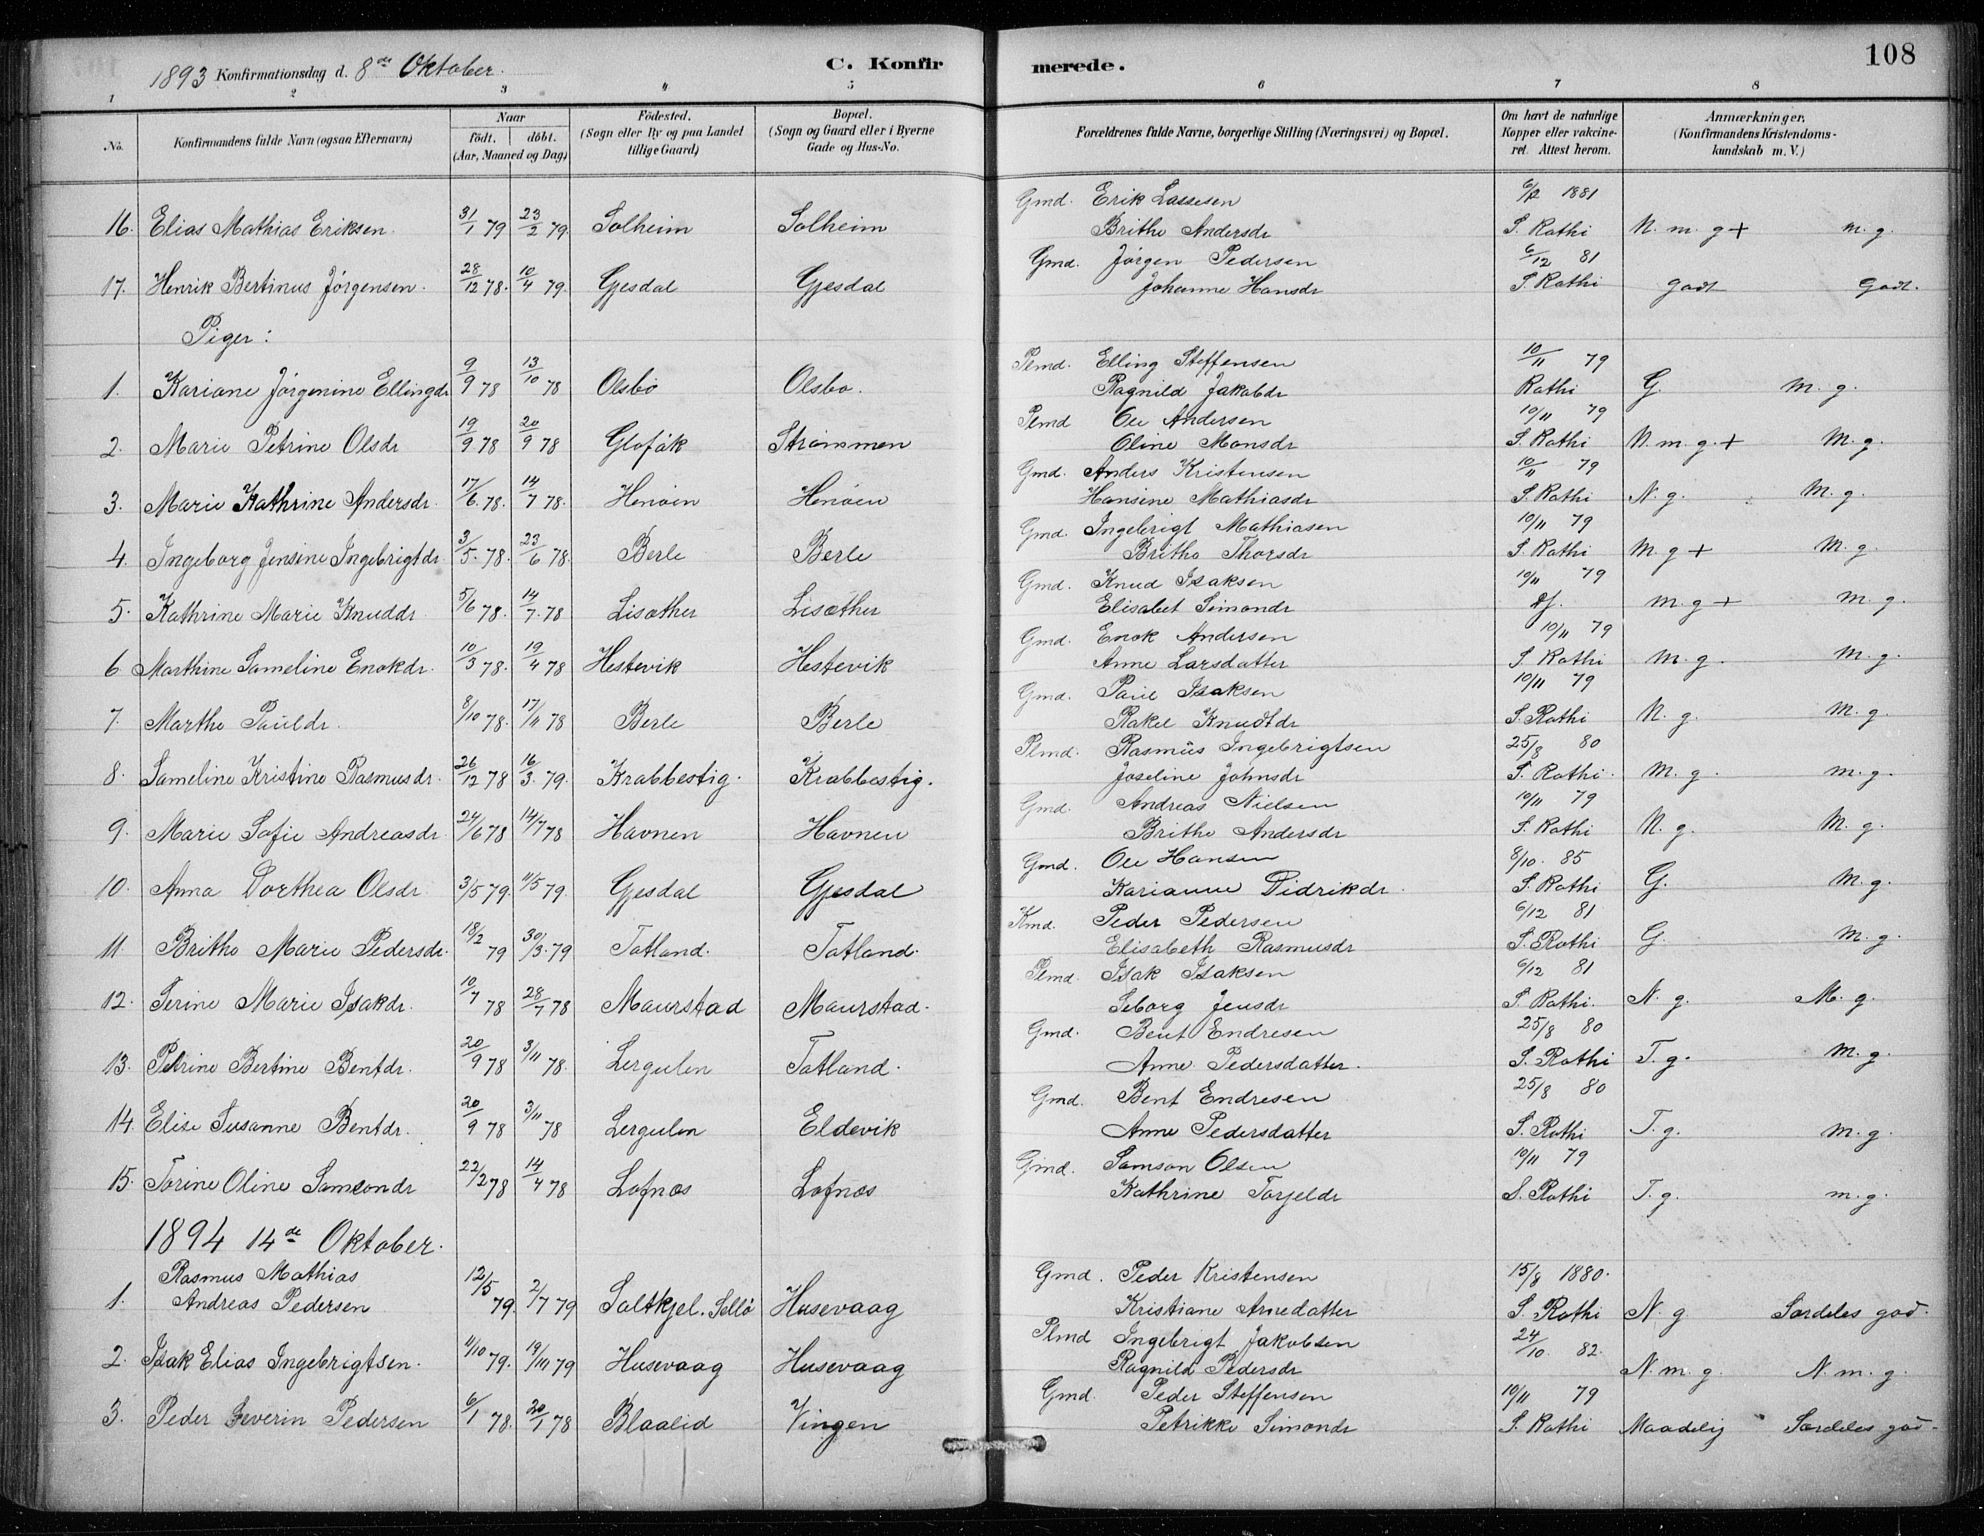 108
1893 Konfirmationsdag d. 8de Oktober. C. Konfirmerede.
1 2 3 4 5 6 7 8
No. Konfirmandens fulde Navn (ogsaa Efternavn) Naar født. døbt. (Aar, Maaned og Dag) Fødested. (Sogn eller By og paa Landet tillige Gaard) Bopæl. (Sogn og Gaard eller i Byerne Gade og Hus-No. Forældrenes fulde Navne, borgerlige Stilling (Næringsvei) og Bopæl. Om havt de naturlige Kopper eller vakcineret. Attest herom. Anmærkninger. (Konfirmandens Kristendomskundskab m. V.)
Gmd. Erik Lassesen 6/12 1881
16. Elias Mathias Eriksen. 31/1 79 23/2 79. Solheim Solheim Brithe Andersdr S. Rathi N. m. g + m. g.
Gmd. Jørgen Pedersen 6/12 81
17. Henrik Bertinus Jørgensen. 28/12 78. 10/4 79. Gjesdal Gjesdal Johanne Hansdr S. Rathi godt Godt.
Piger:
Plmd. Elling Steffensen 10/11 79
1. Kariane Jørgenine Ellingdr 9/9 78 13/10 78 Olsbø Olsbo. Ragnild Jakobdr Rathi G. M. g.
Plmd Ole Andersen 10/11 79
2. Marie Petrine Olsdr 19/9 78 20/9 78 Glofåk Strømmen Oline Monsdr S. Rathi N. m. g. + M. g.
Gmd. Anders Kristensen 10/11 79
3. Marie Kathrine Andersdr. 17/6. 78. 14/7 78. Henøen Henøen Hansine Mathiasdr S. Rathi N. g. M. g.
Gmd. Ingebrigt Mathiasen 10/11 79
4. Ingeborg Jensine Ingebrigtdr. 3/5. 78. 23/6 78. Berle Berle Britha Thorsdr S. Rathi M. g + M. g.
Gmd. Knud Isaksen 10/11 79
5. Kathrine Marie Knuddr. 5/6 78. 14/7. 78 Lisæther Lisæther Elisabet Simondr m. g + M. g.
Gmd. Enok Andersen 10/11 79
6 Marthine Sameline Enokdr. 10/3 78. 19/4 78 Hestevik Hestevik Anne Larsdatter S. Rathi M. g. M. g.
Gmd. Paul Isaksen 10/11 79
7. Martha Pauldr. 8/10 78. 17/11 78 Berle Berle Rakel Knudtdr S. Rathi N. g. M. g.
Plmd. Rasmus Ingebrigtsen 25/8 80
8. Sameline Kristine Rasmusdr. 26/12 78 16/3. 79. Krabbestig. Krabbestig. Joseline Johnsdr S. Rathi. M. g. m. g.
Gmd. Andreas Nielsen 10/11 79
9. Marie Sofie Andreasdr. 24/6 78 14/7 78 Havnen Havnen Brithe Andersdr S. Rathi N. g. M. g.
Gmd. Ole Hansen 8/10. 85
10. Anna Dorthea Olsdr 3/5 79. 11/5 79. Gjesdal Gjesdal Karianne Didrikdr. S. Rathi G. M. g.
Kmd. Peder Pedersen 6/12 81
11. Britha Marie Pedersdr. 18/2 79 30/3. 79 Totland. Totland. Elisabeth Rasmusdr S. Rathi G. M. g.
Plmd. Isak Isaksen 6/12 81
12. Serine Marie Isakdr. 10/7 78 28/7 78 Maurstad Maurstad. Seborg Jensdr S. Rathi. N. g. M. g.
Gmd. Bent Endresen 25/8 80
13. Petrine Bertine Bentdr. 20/9 78 3/11 78. Lergulen Totland. Anne Pedersdatter. S. Rathi T. g. m. g.
Gmd. Bent Endresen 25/8 80
14. Elise Susanne Bentdr. 20/9 78 3/11 78 Lergulen Eldevik Anne Pedersdatter S. Rathi T. g. m. g.
Gmd. Samson Olsen 10/11 79
15. Torine Oline Samsondr 22/2 78 14/4 78 Lofnæs Lofnæs Kathrine Torjeldr S. Rathi T. g. m. g.
1894 14de Oktober.
Rasmus Mathias Gmd. Peder Kristensen 15/8 1880.
1. Andreas Pedersen 12/5 79. 2/7 79 Saltkjel. Sellø Husevaag Kristiane Arnedatter S. Rathi N. g Særdeles god.
Plmd Ingebrigt Jakobsen 24/10. 82.
2. Isak Elias Ingebrigtsen. 11/10 79. 19/10 79 Husevaag Husevaag Ragnild Pedersdr N. m. g. N. m. g.
Gmd. Peder Steffensen 10/11 79
3. Peder Severin Pedersen 6/1 78. 20/1 78 Blaalid Vingen Petrikke Simondr S. Rathi Maadelig Særdeles god.